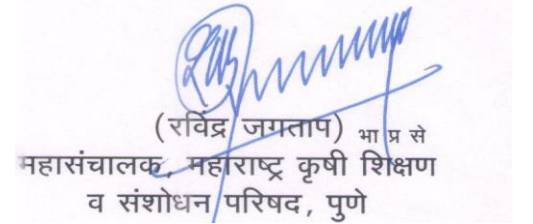 (रविंद्र जगताप) भा प्र से
महासंचालक, महाराष्ट्र कृषी शिक्षण
व संशोधन परिषद, पुणे